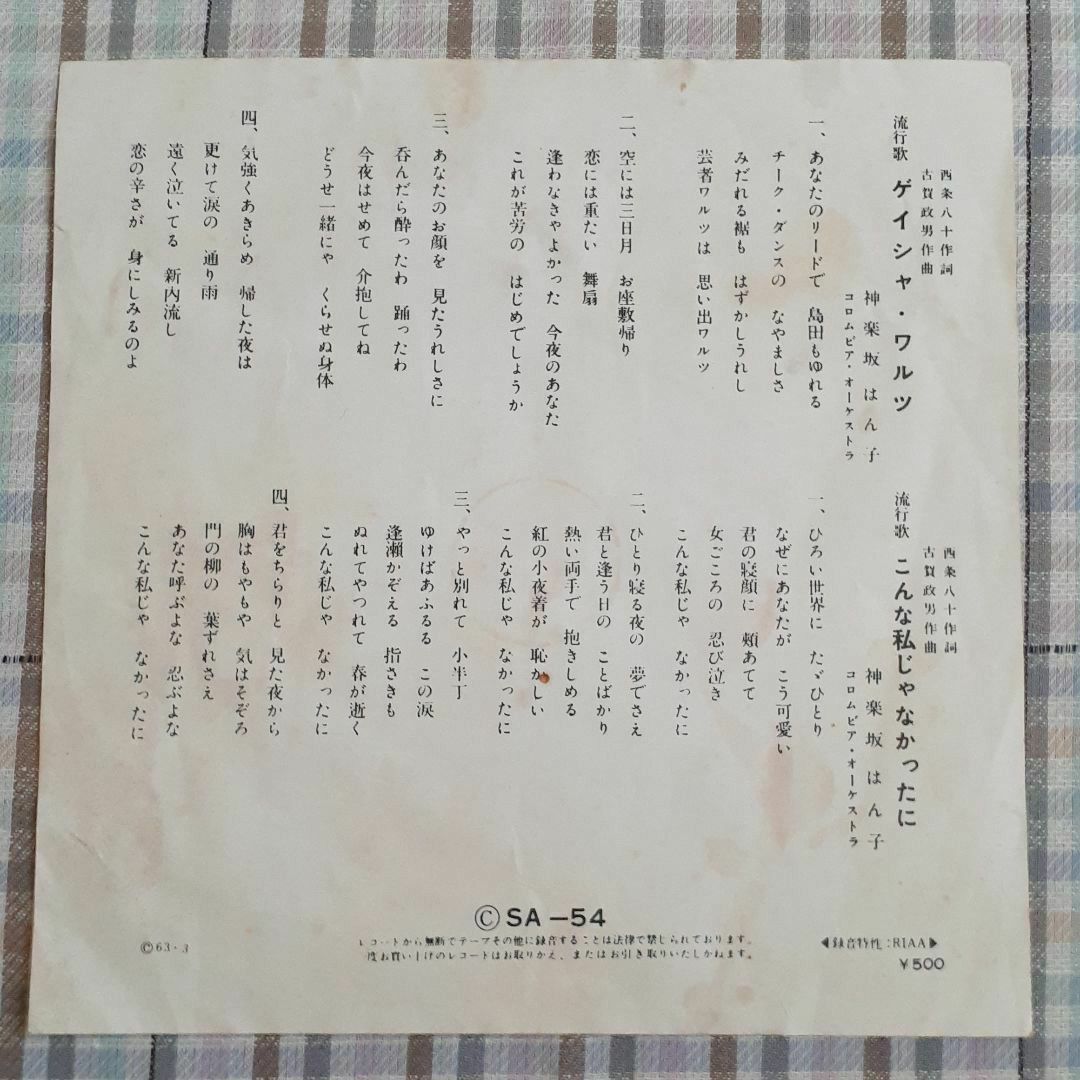 西条八十作詞
古賀政男作曲
流行歌 ゲイシャ・ワルツ
神楽坂はん子
コロムビア・オーケストラ
一、あなたのリードで 島田もゆれる
チーク・ダンスの なやましさ
みだれる裾も はずかしうれし
芸者ワルツは 思い出ワルツ
二、空には三日月 お座敷帰り
恋には重たい 舞扇
逢わなきゃよかった 今夜のあなた
これが苦労の はじめでしょうか
三、あなたのお顔を 見たうれしさに
呑んだら酔ったわ 踊ったわ
今夜はせめて 介抱してね
どうせ一緒にゃ くらせぬ身体
四、気強くあきらめ 帰した夜は
更けて涙の 通り雨
遠く泣いてる 新内流し
恋の辛さが 身にしみるのよ
西条八十作詞
古賀政男作曲
流行歌 こんな私じゃなかったに
神楽坂はん子
コロムビア・オーケストラ
一、ひろい世界に たゞひとり
なぜにあなたが こう可愛い
君の寝顔に 頬あてて
女ごころの 忍び泣き
こんな私じゃ なかったに
二、ひとり寝る夜の 夢でさえ
君と逢う日の ことばかり
熱い両手で 抱きしめる
紅の小夜着が 恥かしい
こんな私じゃ なかったに
三、やっと別れて 小半丁
ゆけばあふるる この涙
逢瀬かぞえる 指さきも
ぬれてやつれて 春が逝く
こんな私じゃ なかったに
四、君をちらりと 見た夜から
胸はもやもや 気はそぞろ
門の柳の 葉ずれさえ
あなた呼ぶよな 忍ぶよな
こんな私じゃ なかったに
Ⓒ SA-54
レコードから無断でテープその他に録音することは法律で禁じられております。
度お買い上げのレコードはお取りかえ、またはお引き取りいたしかねます。
Ⓒ63・3
◀録音特性:RIAA▶
￥500